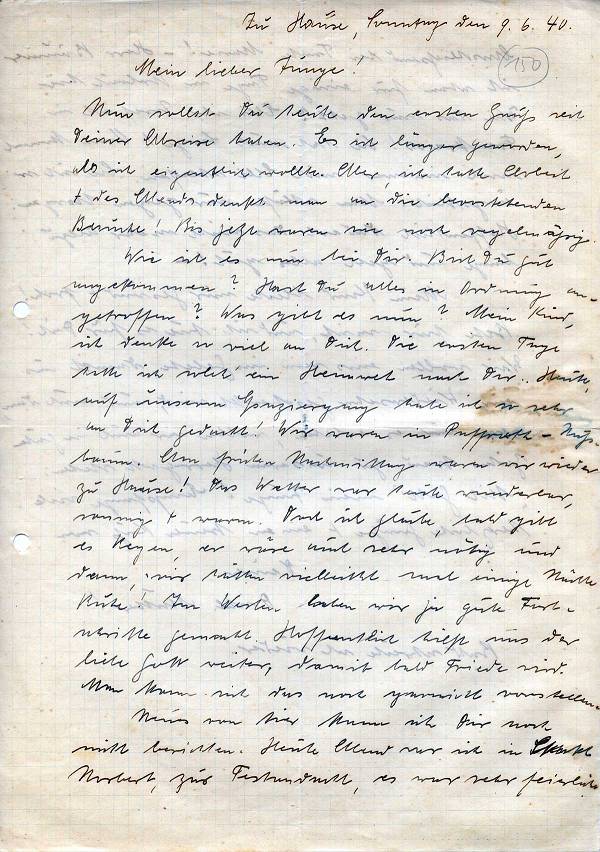 Zu Hause, Sonntag den 9.6.40.
150
Mein lieber Junge!
Nun sollst Du heute den ersten Gruß seit
Deiner Abreise haben. Es ist länger geworden,
als ich eigentlich wollte. Aber, ich hatte Arbeit
+ des Abends denkt man an die bevorstehenden
Besuche! Bis jetzt waren sie noch regelmäßig.
Wie ist es nun bei Dir. Bist Du gut
angekommen? Hast Du alles in Ordnung an-
getroffen? Was gibt es nun? Mein Kind,
ich denke so viel an Dich. Die ersten Tage
hatte ich solch ein Heimweh nach Dir. Heute,
auf unserem Spaziergang habe ich so sehr
an Dich gedacht! Wir waren in Nuß-
baum. Am frühen Nachmittag waren wir wieder
zu Hause! Das Wetter war heute wunderbar,
sonnig + warm. Doch ich glaube, bald gibt
es Regen, er wäre auch sehr nötig und
dann, wir hätten vielleicht mal einige Nächte
Ruhe! Im Westen haben wir ja gute Fort-
schritte gemacht. Hoffentlich hilft uns der
liebe Gott weiter, damit bald Friede wird.
Man kann sich das noch garnicht vorstellen.
Neues von hier kann ich Dir noch
nicht berichten. Heute Abend war ich in Sankt
Norbert, zur Festandacht, es war sehr feierlich